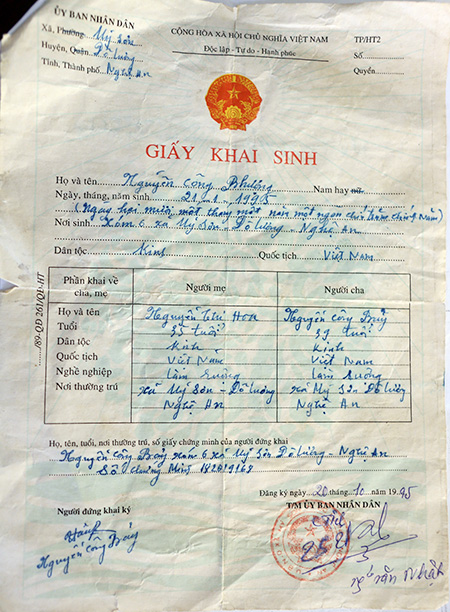 ỦY BAN NHÂN DÂN
Xã, Phường Mỹ Sơn
Huyện, Quận Đô Lương
Tỉnh, Thành phố Nghệ An
CỘNG HÒA XÃ HỘI CHỦ NGHĨA VIỆT NAM
Độc lập - Tự do - Hạnh phúc
TP/HT2
Số
Quyển
GIẤY KHAI SINH
Họ và tên Nguyễn Công Phượng Nam hay nữ
Ngày, tháng, năm sinh 21 - 1 - 1995
(Ngày hai mươi một tháng một năm một ngàn chín trăm chín năm)
Nơi sinh Xóm 6 xã Mỹ Sơn - Đô Lương - Nghệ An
Dân tộc Kinh Quốc tịch Việt Nam
Phần khai về cha, mẹ Người mẹ Người cha
Họ và tên Nguyễn Thị Hoa Nguyễn Công Bảy
Tuổi 35 tuổi 39 tuổi
Dân tộc Kinh Kinh
Quốc tịch Việt Nam Việt Nam
Nghề nghiệp Làm ruộng Làm ruộng
Nơi thường trú xã Mỹ Sơn - Đô Lương xã Mỹ Sơn Đô Lương
Nghệ An Nghệ An
Họ, tên, tuổi, nơi thường trú, số giấy chứng minh của người đứng khai
Nguyễn Công Bảy xóm 6 xã Mỹ Sơn Đô Lương - Nghệ An
Số chứng minh
Đăng ký ngày 20 tháng 10 năm 1995
Người đứng khai ký
T/M ỦY BAN NHÂN DÂN
Nguyễn Công Bảy